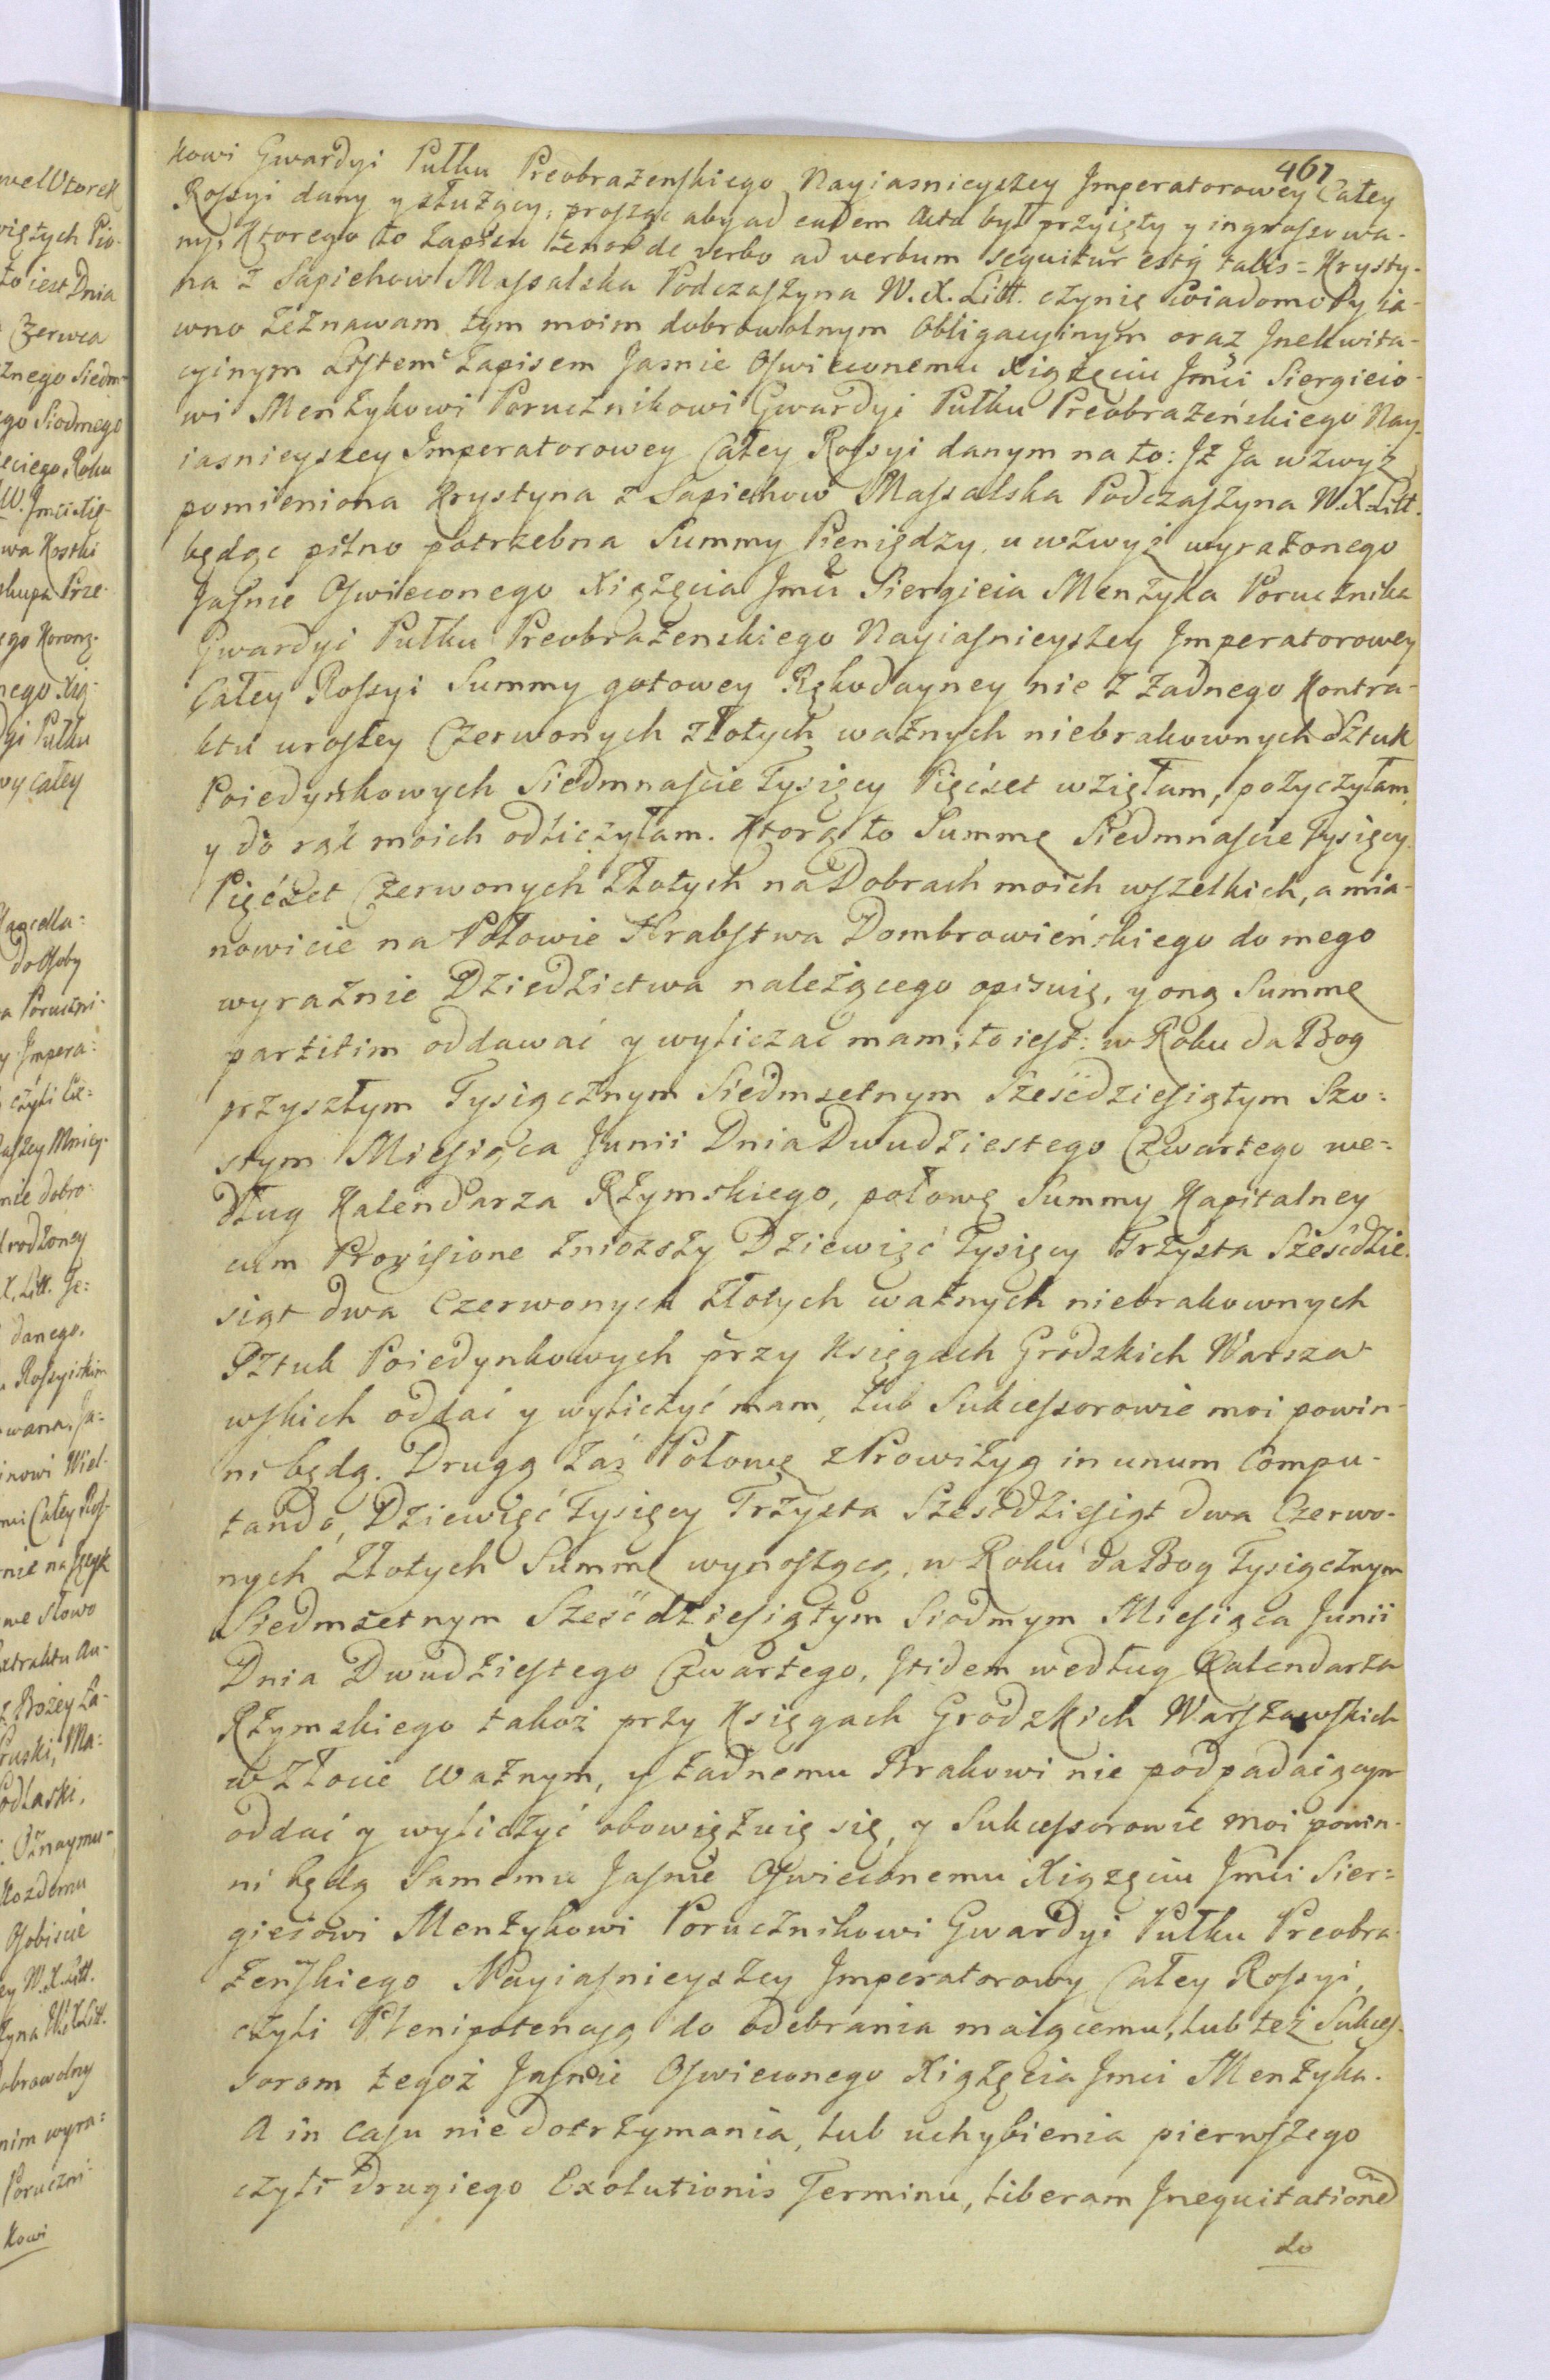 467
kowi Gwardyi Pułku Preobrażenskiego Nayiasnieyszey Jmperatorowey Całey
Rossyi dany y służący, prosząc aby ad eadem Acta był przyięty y ingrossowa-
ny, Ktorego to Zapisu tenor de verbo ad verbum sequitur estq talis = Krysty-
na z Sapiehow Massalska Podczaszyna W. X. Litt. czynię Wiadomo Y ia-
wno zeznawam tym moim dobrowolnym Obligacyinym oraz Jnekwita-
cyinym Listem Zapisem Jasnie Oswieconemu Xiążęciu Jmci Siergieio-
wi Menżykowi Porucznikowi Gwardyi Pułku Preobrażeńskiego Nay-
iasnieyszey Imperatorowey Całey Rossyi danym na to: Jż Ja wzwyż
pomieniona Krystyna z Sapiehow Massalska Podczaszyna W. X. Litt.
będąc pilno potrzebna Summy Pieniędzy, u wzwyż wyrażonego
Jasnie Oswieconego Xiążęcia Jmci Siergieia Menżyka Porucznika
Gwardyi Pułku Preobrażenskiego Nayiasnieyszey Jmperatorowey
Całey Rossyi Summy gotowey Rękodayney nie z żadnego Kontra-
ktu urosłey Czerwonych złotych ważnych niebrakownych Sztuk
Poiedynkowych Siedmnascie Tysięcy Pięćset wzięłam, pożyczyłam,
y do rąk moich odliczyłam. Ktorą to Summę Siedmnascie Tysięcy
Pięćset Czerwonych Złotych na Dobrach moich wszelkich, a mia-
nowicie na Połowie Hrabstwa Dombrowieńskiego do mego
wyraźnie Dziedzictwa należącego opisuię, y oną Summę
partitim oddawać y wyliczać mam; to iest: w Roku da Bog
przyszłym Tysiącznym Siedmsetnym Sześćdziesiątym Szo-
stym Miesiąca Junii Dnia Dwudziestego Czwartego we-
dług Kalendarza Rzymskiego, połowę Summy Kapitalney
cum Provisione zniozszy Dziewięć Tysięcy Trzysta Sześćdzie-
siąt dwa Czerwonych Złotych ważnych niebrakownych
Sztuk Poiedynkowych przy Księgach Grodzkich Warsza-
wskich oddać y wyliczyć mam, lub Sukcessorowie moi powin-
ni będą. Drugą zaś Połowę z Prowizyą in unum Compu-
tando, Dziewięć Tysięcy Trzysta Sześćdziesiąt dwa Czerwo-
nych Złotych Summę wynoszącą, w Roku da Bog Tysiącznym
Siedmsetnym Sześćdziesiątym Siodmym Miesiąca Junii
Dnia Dwudziestego Czwartego, Jtidem według Kalendarza
Rzymskiego takoż przy Księgach Grodzkich Warszawskich
w Złocie ważnym, y żadnemu Brakowi nie podpadaiącym
oddać y wyliczyć obowięzuię się, y Sukcessorowie moi powin-
ni będą Samemu Jasnie Oswieconemu Xiążęciu Jmci Sier-
gieiowi Menżykowi Porucznikowi Gwardyi Pułku Preobra-
żeńskiego Nayiasnieyszey Jmperatorowy Całey Rossyi,
czyli Plenipotencyą do odebrania maiącemu, lub też Sukces-
sorom tegoż Jasnie Oswieconego Xiążęcia Jmci Menżyka.
A in Casu niedotrzymania, lub uchybienia pierwszego
czyli drugiego Exolutionis Terminu, liberam Jnequitationem
do